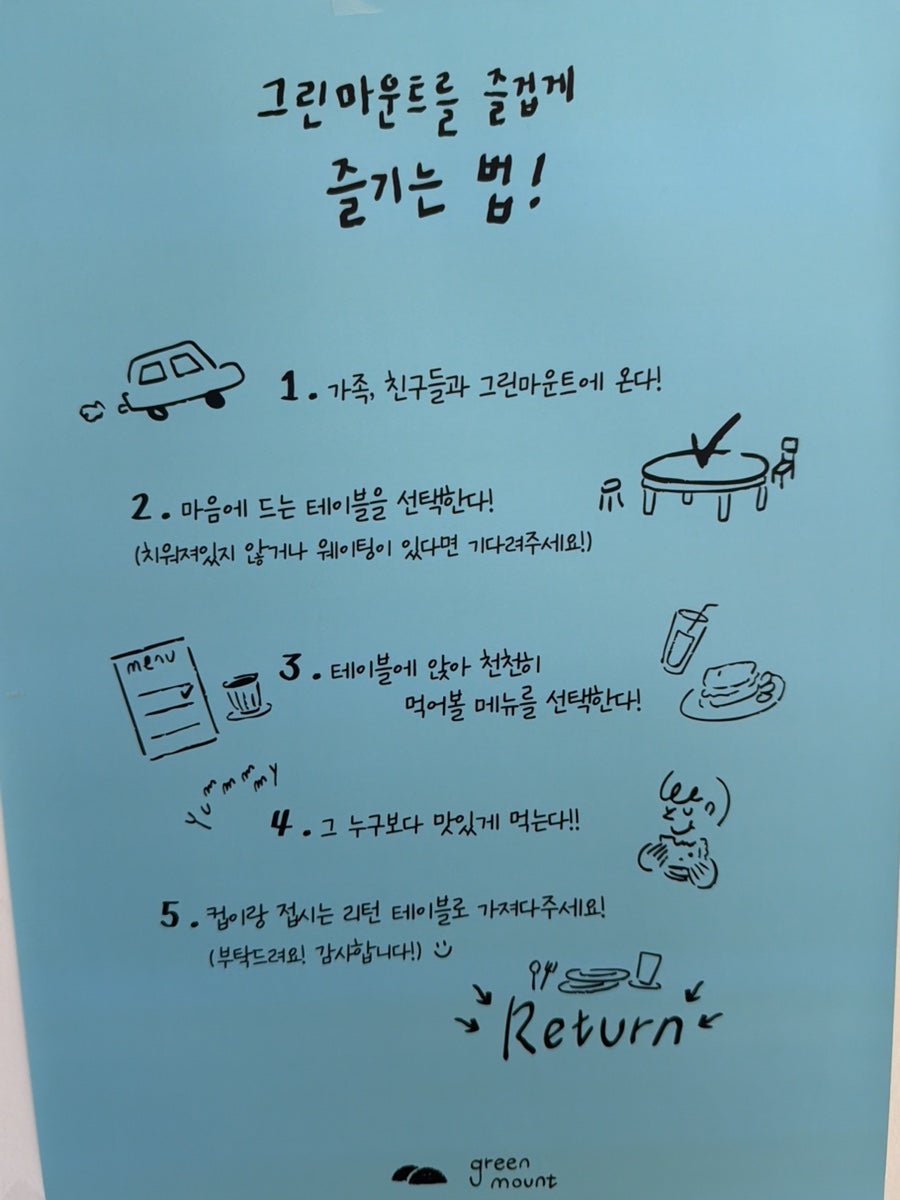 그린마운트를 즐겁게
즐기는 법!
1. 가족, 친구들과 그린마운트에 온다!
2. 마음에 드는 테이블을 선택한다!
(치워져있지 않거나 웨이팅이 있다면 기다려주세요!)
menu
3. 테이블에 앉아 천천히
먹어볼 메뉴를 선택한다!
Yummmmy
4. 그 누구보다 맛있게 먹는다!!
5. 컵이랑 접시는 리턴 테이블로 가져다주세요!
(부탁드려요! 감사합니다!)
Return
green
mount